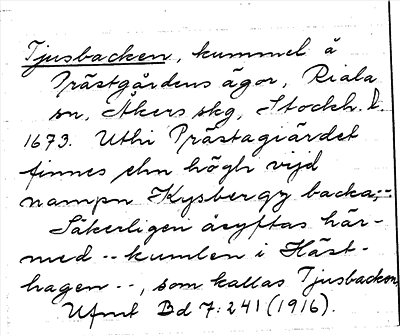 Tjusbacken, kummel å
Prästgårdens ägor, Riala
sn, Åkers skg, Stockh. l.
1673. Uthi Prästagiärdet
finnes ehn högh vijd
nampn Kysbergz backa, --
Säkerligen åsyftas här-
med -- kumlen i Häst-
hagen --, som kallas Tjusbacken
Ufmt Bd 7:241 (1916).